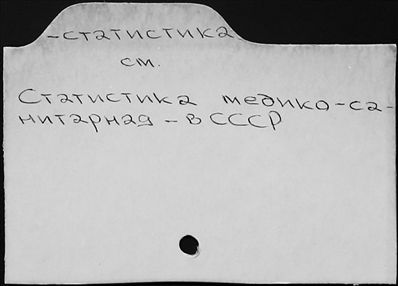 -статистика
см.
Статистика медико-са-
нитарная - в СССР